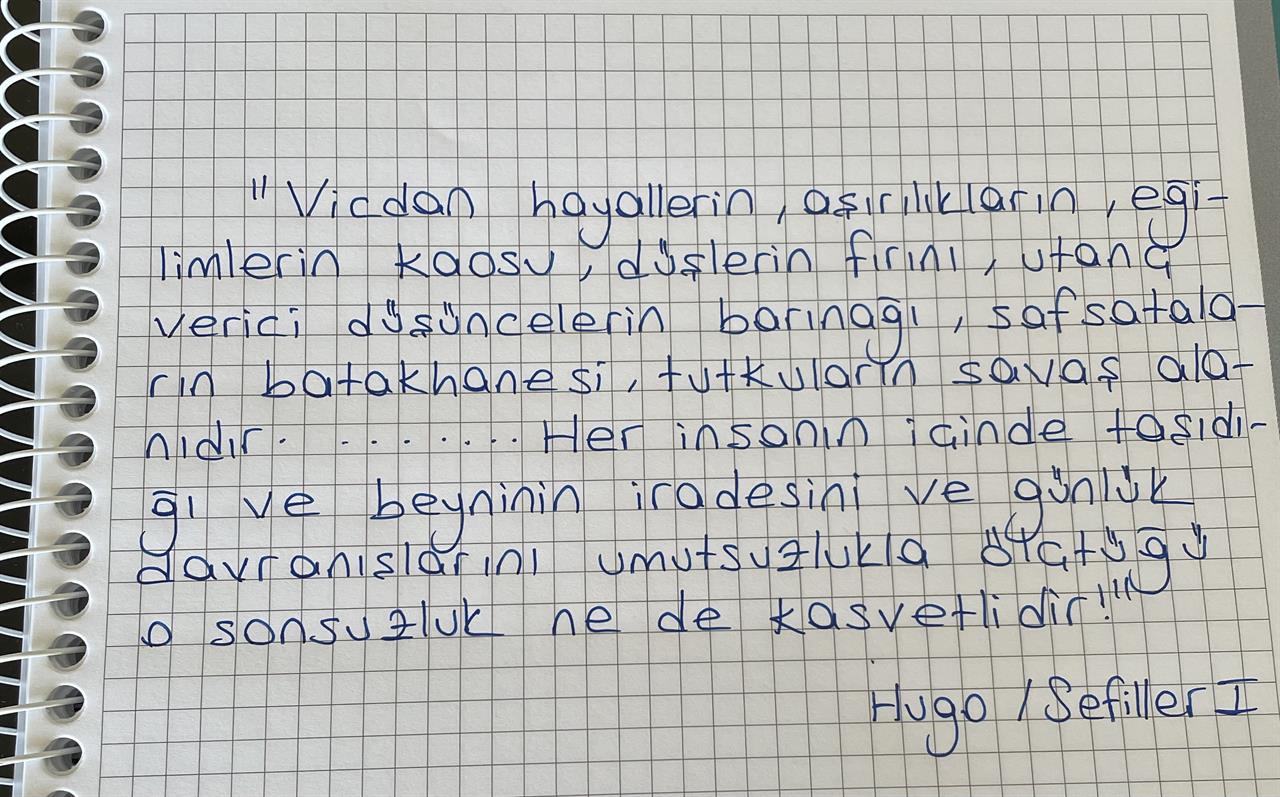 "Vicdan hayallerin, aşırılıkların, eği-
limlerin kaosu, düşlerin fırını, utanç
verici düşüncelerin barınağı, safsatala-
rın batakhanesi, tutkuların savaş ala-
nıdır. ........ Her insanın içinde taşıdı-
ğı ve beyninin iradesini ve günlük
davranışlarını umutsuzlukla ölçtüğü
o sonsuzluk ne de kasvetlidir!!!"
Hugo / Sefiller I